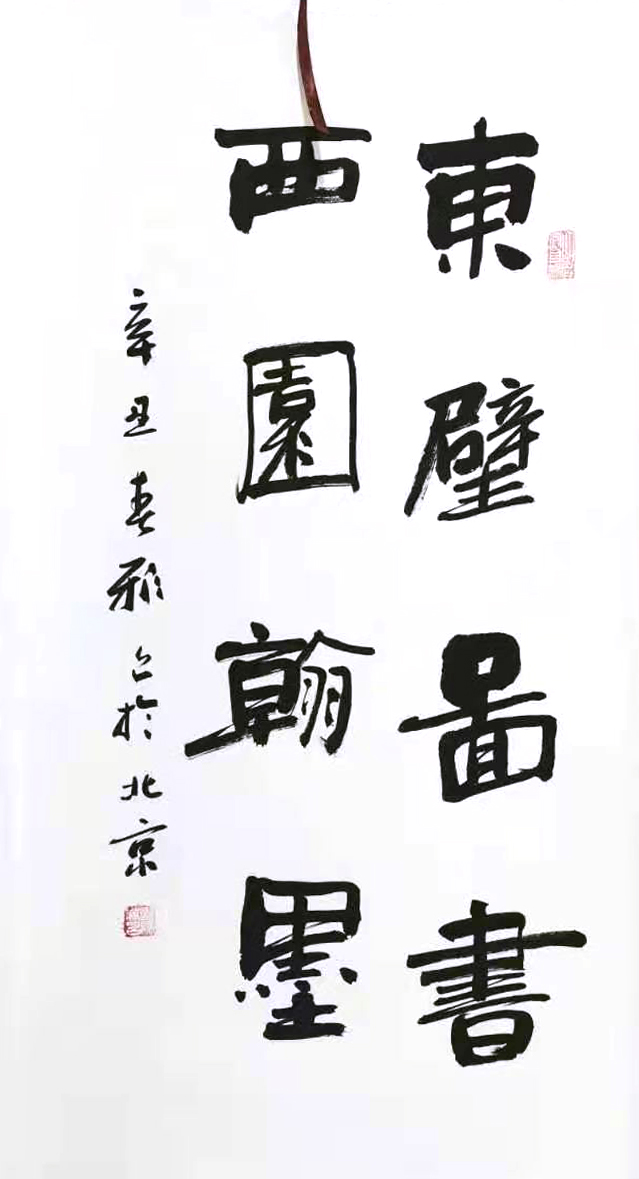 東壁啚書
西園翰墨
辛丑春雅於北京